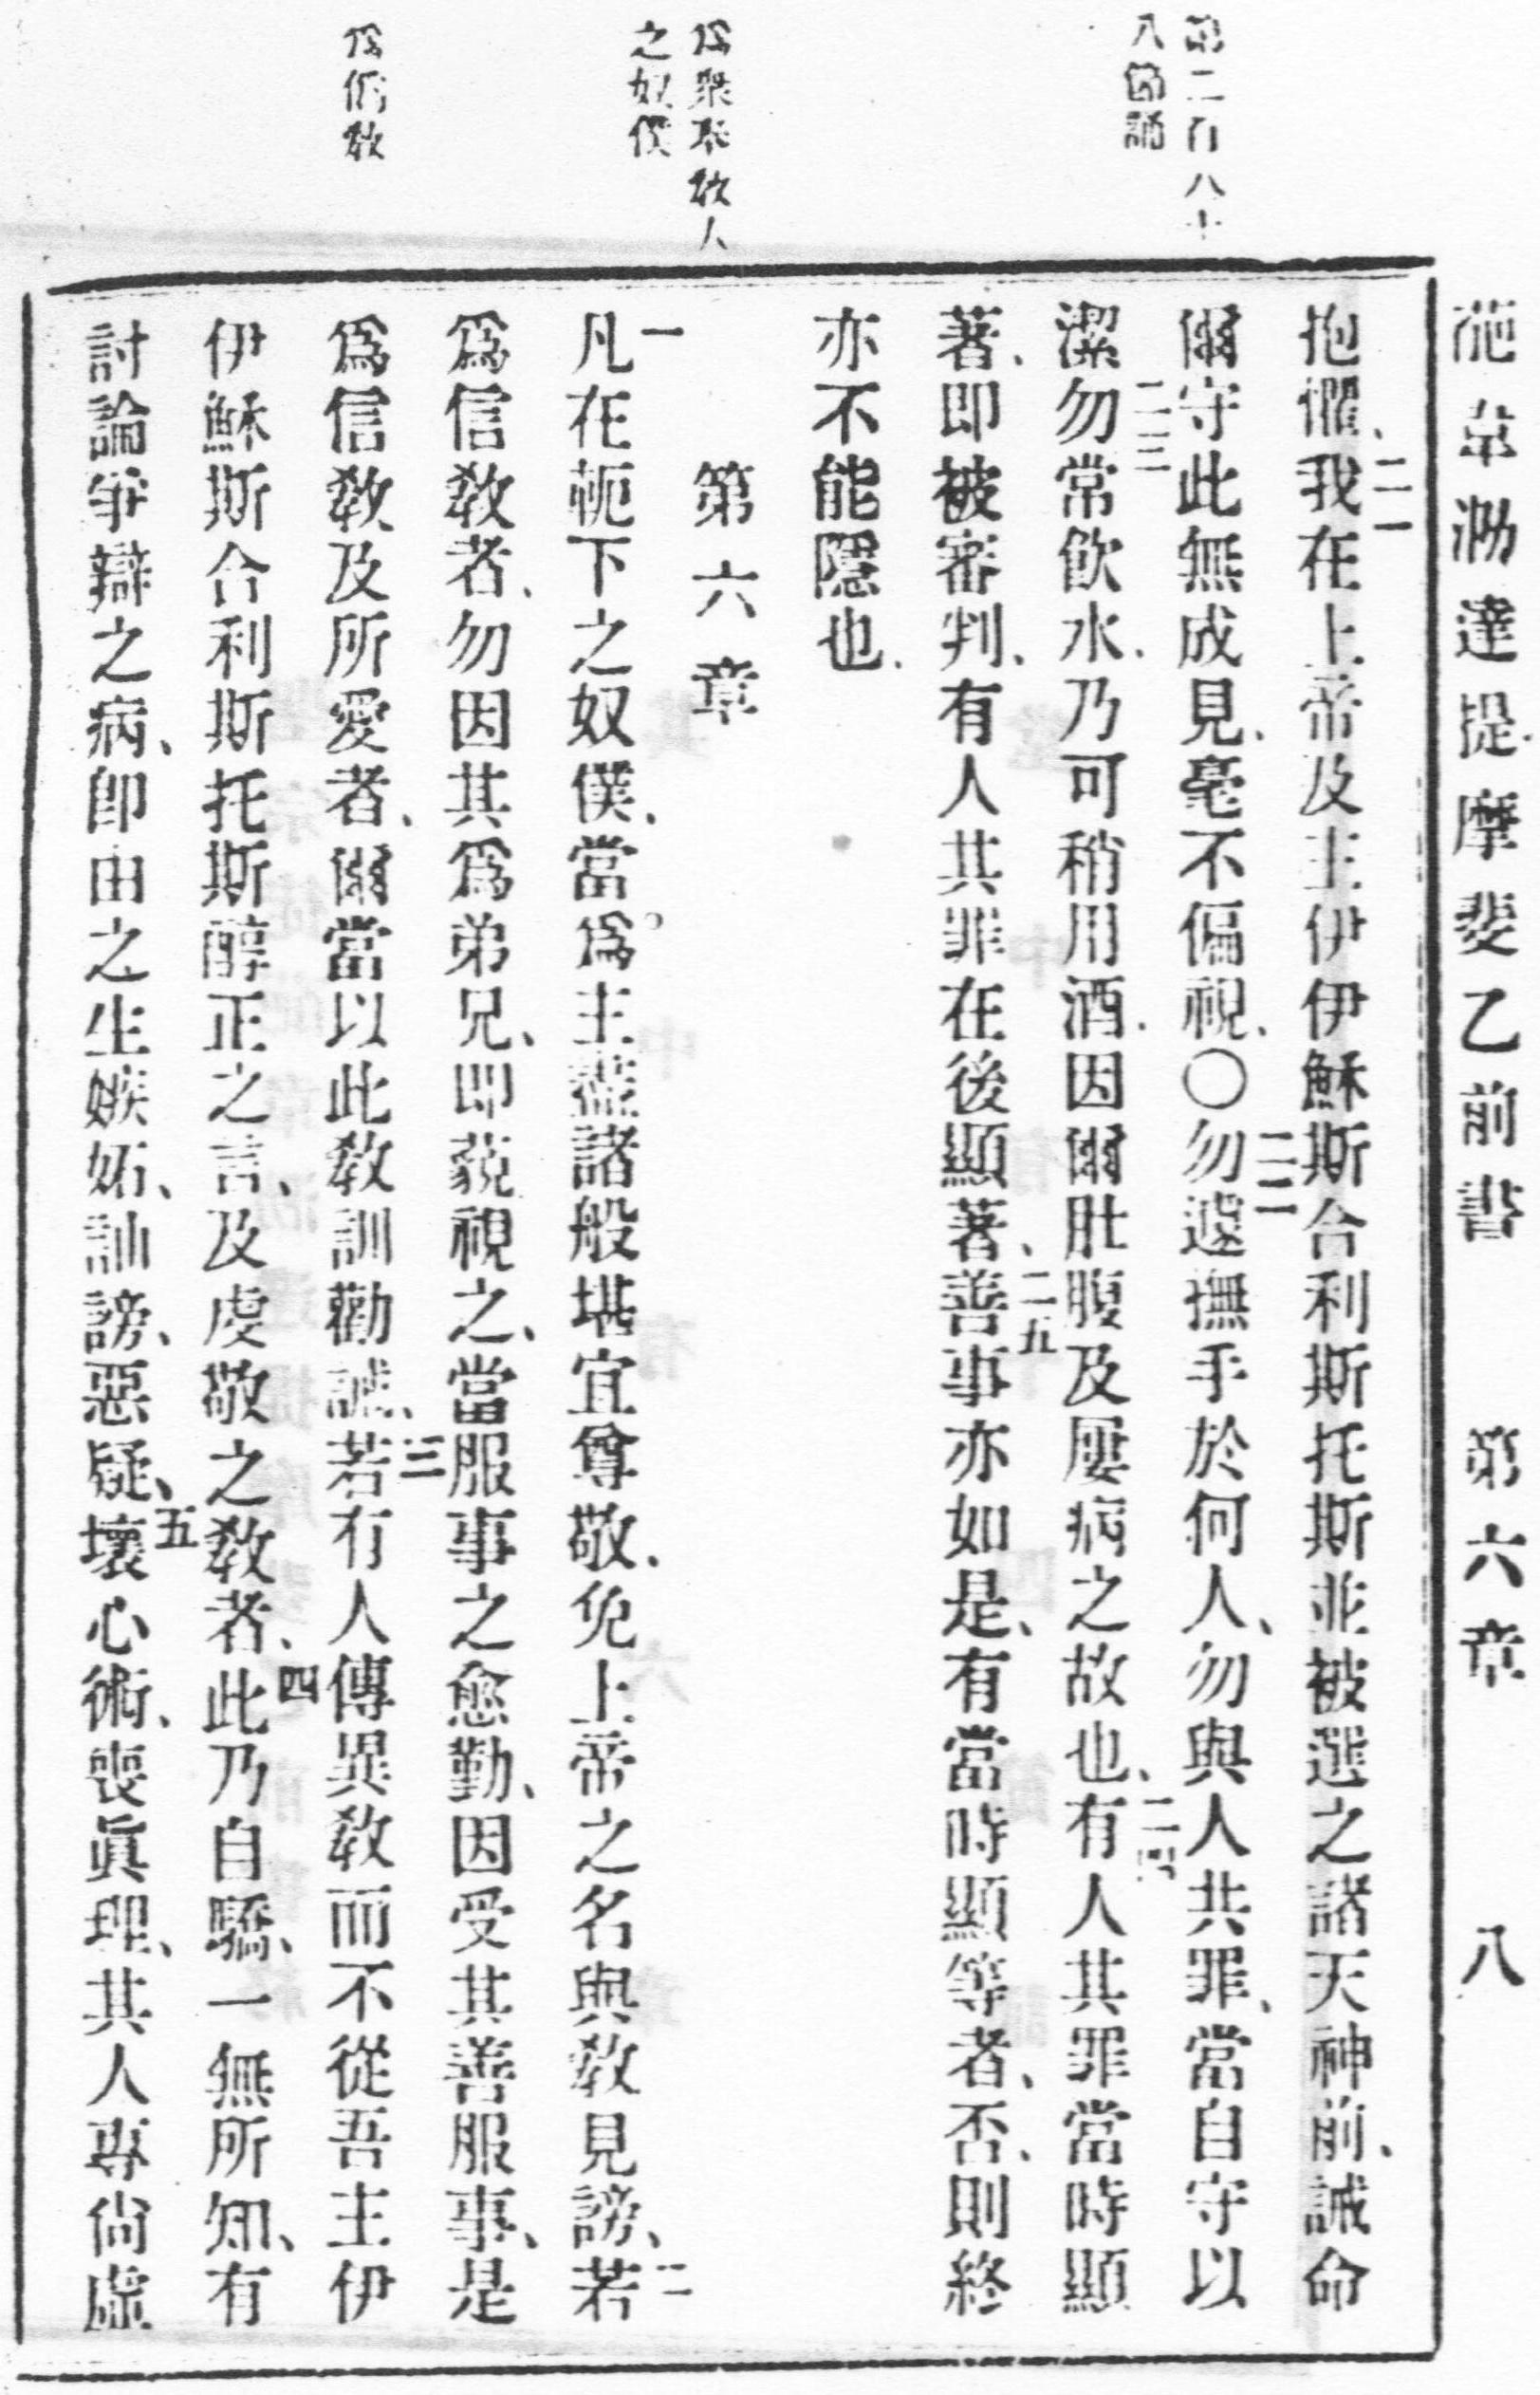 葩韋泐達提摩斐乙前書 第六章 八
第二百八十
八節誦
抱懼、二一我在上帝及主伊伊穌斯合利斯托斯並被選之諸天神前、誡命
爾守此無成見、毫不偏視、〇二二勿遽撫手於何人、勿與人共罪、當自守以
潔二三勿常飲水、乃可稍用酒、因爾肚腹及屢病之故也、二四有人其罪當時顯
著、即被審判、有人其罪在後顯著、二五善事亦如是、有當時顯等者、否、則終
亦不能隱也、
第六章
為眾奉教人
之奴僕
一凡在軛下之奴僕、當為主。諸般堪宜尊敬、免上帝之名與教見謗、二若
為信教者、勿因其為弟兄、即藐視之、當服事之愈勤、因受其善服事、是
為信教及所愛者、爾當以此教訓勸誡、三若有人傳異教而不從吾主伊
為偽教
伊穌斯合利斯托斯醇正之言、及虔敬之教者、四此乃自驕、一無所知、有
討論爭辯之病、即由之生嫉妬、訕謗、惡疑、五壞心術、喪眞理、其人專尙虛